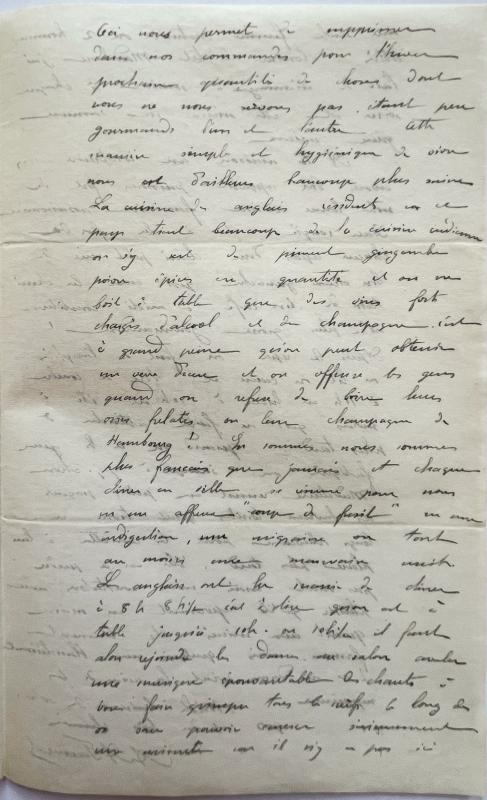 Ceci nous permet de supprimer
dans nos commandes pour l'hiver
prochain quantité de choses dont
nous ne nous servons pas étant peu
gourmands l'un et l'autre Cette
manière simple et hygiénique de vivre
nous est d'ailleurs beaucoup plus saine
La cuisine des anglais résidant en ce
pays tient beaucoup de la cuisine indienne
on y est du piment gingembre
poivre épices en quantité et on ne
boit à table que des vins fort
chargés d'alcool et du champagne. c'est
à grand peine qu'on peut obtenir
un verre d'eau et on offense les gens
quand on refuse de boire leurs
vins frelatés ou leur champagne de
Hambourg! En somme nous sommes
plus français que jamais et chaque
diner en ville se résume pour nous
en un affreux "coup de fusil" en une
indigestion, une migraine ou tout
au moins une mauvaise nuit
Les anglais ont la manie de diner
à 8 h 8 h 1/2 c'est à dire qu'on est à
table jusqu'à 10h. ou 10h 1/2 il faut
alors rejoindre les dames au salon avaler
une musique épouvantable des chants à
vous faire grimper tous les nerfs le long du
dos sans pouvoir causer sérieusement
une minute car il n'y a pas ici